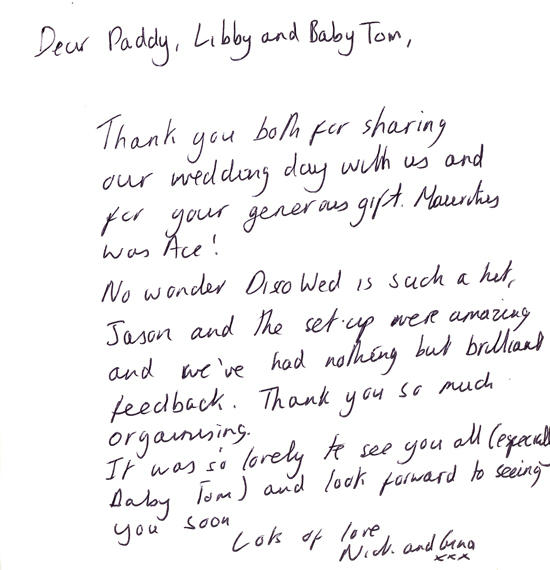 Dear Paddy, Libby and Baby Tom,
Thank you both for sharing
our wedding day with us and
for your generous gift. Mauritius
was Ace!
No wonder Disco Wed is such a hit,
Jason and the set-up were amazing
and we've had nothing but brilliant
feedback. Thank you so much
organising.
It was so lovely to see you all (especially
Baby Tom) and look forward to seeing
you soon
Lots of love
Nick and Gina
xxx